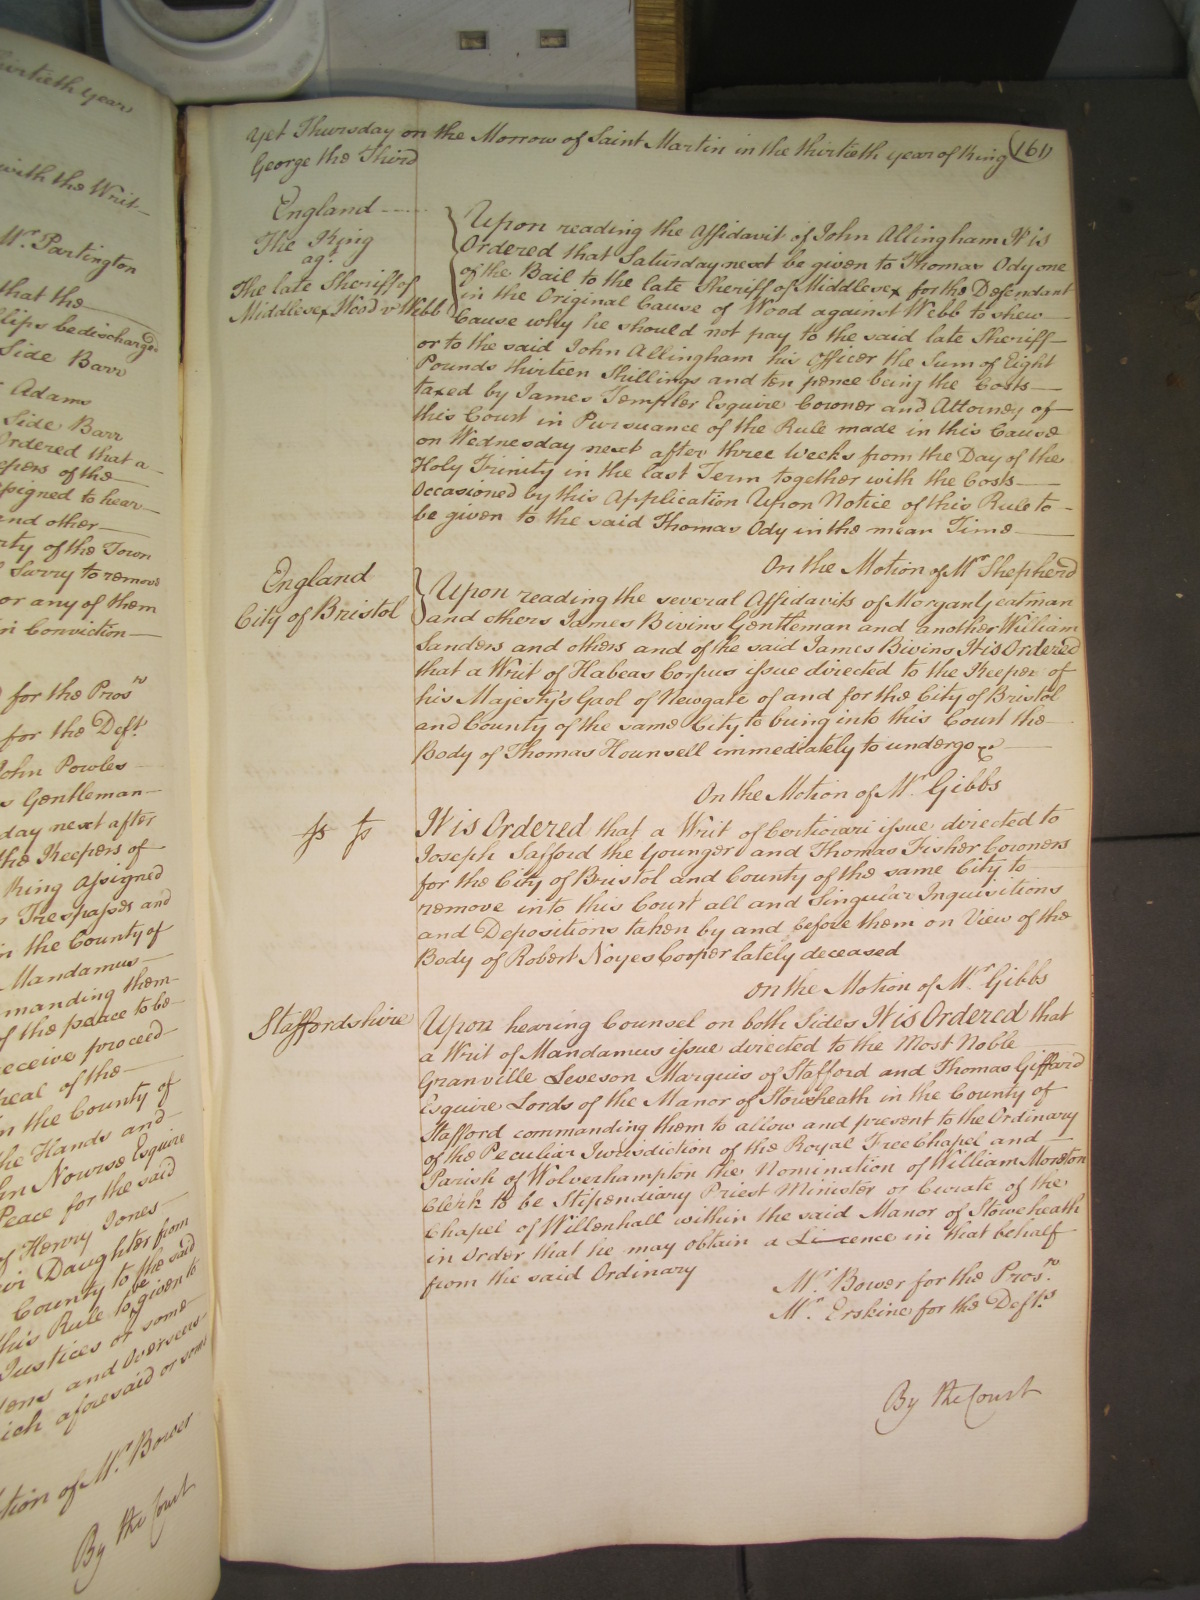 Yet Thursday on the Morrow of Saint Martin in the thirtieth year of King (161)
George the Third
England
The King
ag.t
The late Sheriff of
Middlesex Wood v Webb
Upon reading the Affidavit of John Allingham It is
Ordered that Saturday next be given to Thomas Ody one
of the Bail to the late Sheriff of Middlesex for the Defendant
in the Original Cause of Wood against Webb to shew
Cause why he should not pay to the said late Sheriff
or to the said John Allingham his Officer the Sum of Eight
Pounds thirteen Shillings and ten pence being the Costs
taxed by James Templer Esquire Coroner and Attorney of
this Court in Pursuance of the Rule made in this Cause
on Wednesday next after three Weeks from the Day of the
Holy Trinity in the last Term together with the Costs
Occasioned by this Application Upon Notice of this Rule to
be given to the said Thomas Ody in the mean Time
On the Motion of Mr Shepherd
England
City of Bristol
Upon reading the several Affidavits of Morgan Yeatman
and others James Bivins Gentleman and another William
Sanders and others and of the said James Bivins It is Ordered
that a Writ of Habeas Corpus issue directed to the Keeper of
his Majesty's Gaol of Newgate of and for the City of Bristol
and County of the same City to bring into this Court the
Body of Thomas Hounsell immediately to undergo &c
On the Motion of Mr Gibbs
It is Ordered that a Writ of Certiorari issue directed to
Joseph Safford the Younger and Thomas Fisher Coroners
for the City of Bristol and County of the same City to
remove into this Court all and Singular Inquisitions
and Depositions taken by and before them on View of the
Body of Robert Noyes Cooper lately deceased
On the Motion of Mr Gibbs
Staffordshire
Upon hearing Counsel on both Sides It is Ordered that
a Writ of Mandamus issue directed to the Most Noble
Granville Leveson Marquis of Stafford and Thomas Giffard
Esquire Lords of the Manor of Stowheath in the County of
Stafford commanding them to allow and present to the Ordinary
of the Peculiar Jurisdiction of the Royal Free Chapel and
Parish of Wolverhampton the Nomination of William Moreton
Clerk to be Stipendiary Priest Minister or Curate of the
Chapel of Willenhall within the said Manor of Stoweheath
in Order that he may obtain a Licence in that behalf
from the said Ordinary
Mr. Bower for the Prosrs.
Mr. Erskine for the Defts.
By the Court
thirtieth year
with the Writ
Mr. Partington
that the
be discharged
Side Barr
Adams
Side Barr
Ordered that a
Keepers of the
assigned to hear
and other
of the Town
Surry to remove
or any of them
Conviction
for the Prosrs
for the Deft.
John Powles
Gentleman
day next after
the Keepers of
King Assigned
Trespasses and
in the County of
Mandamus
commanding them
of the peace to be
receive proceed
of the
in the County of
the Hands and
Nourse Esquire
Peace for the said
of Henry Jones
Daughter from
County to the said
this Rule to be given to
Justices or some
and Overseers
aforesaid or some
Motion of Mr. Bower
By the Court